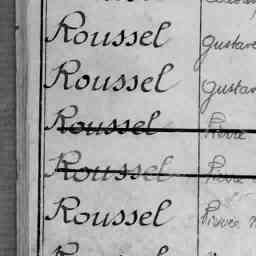 Roussel Gustave
Roussel Gustav
Roussel Pierre
Roussel Pierre
Roussel Pierre